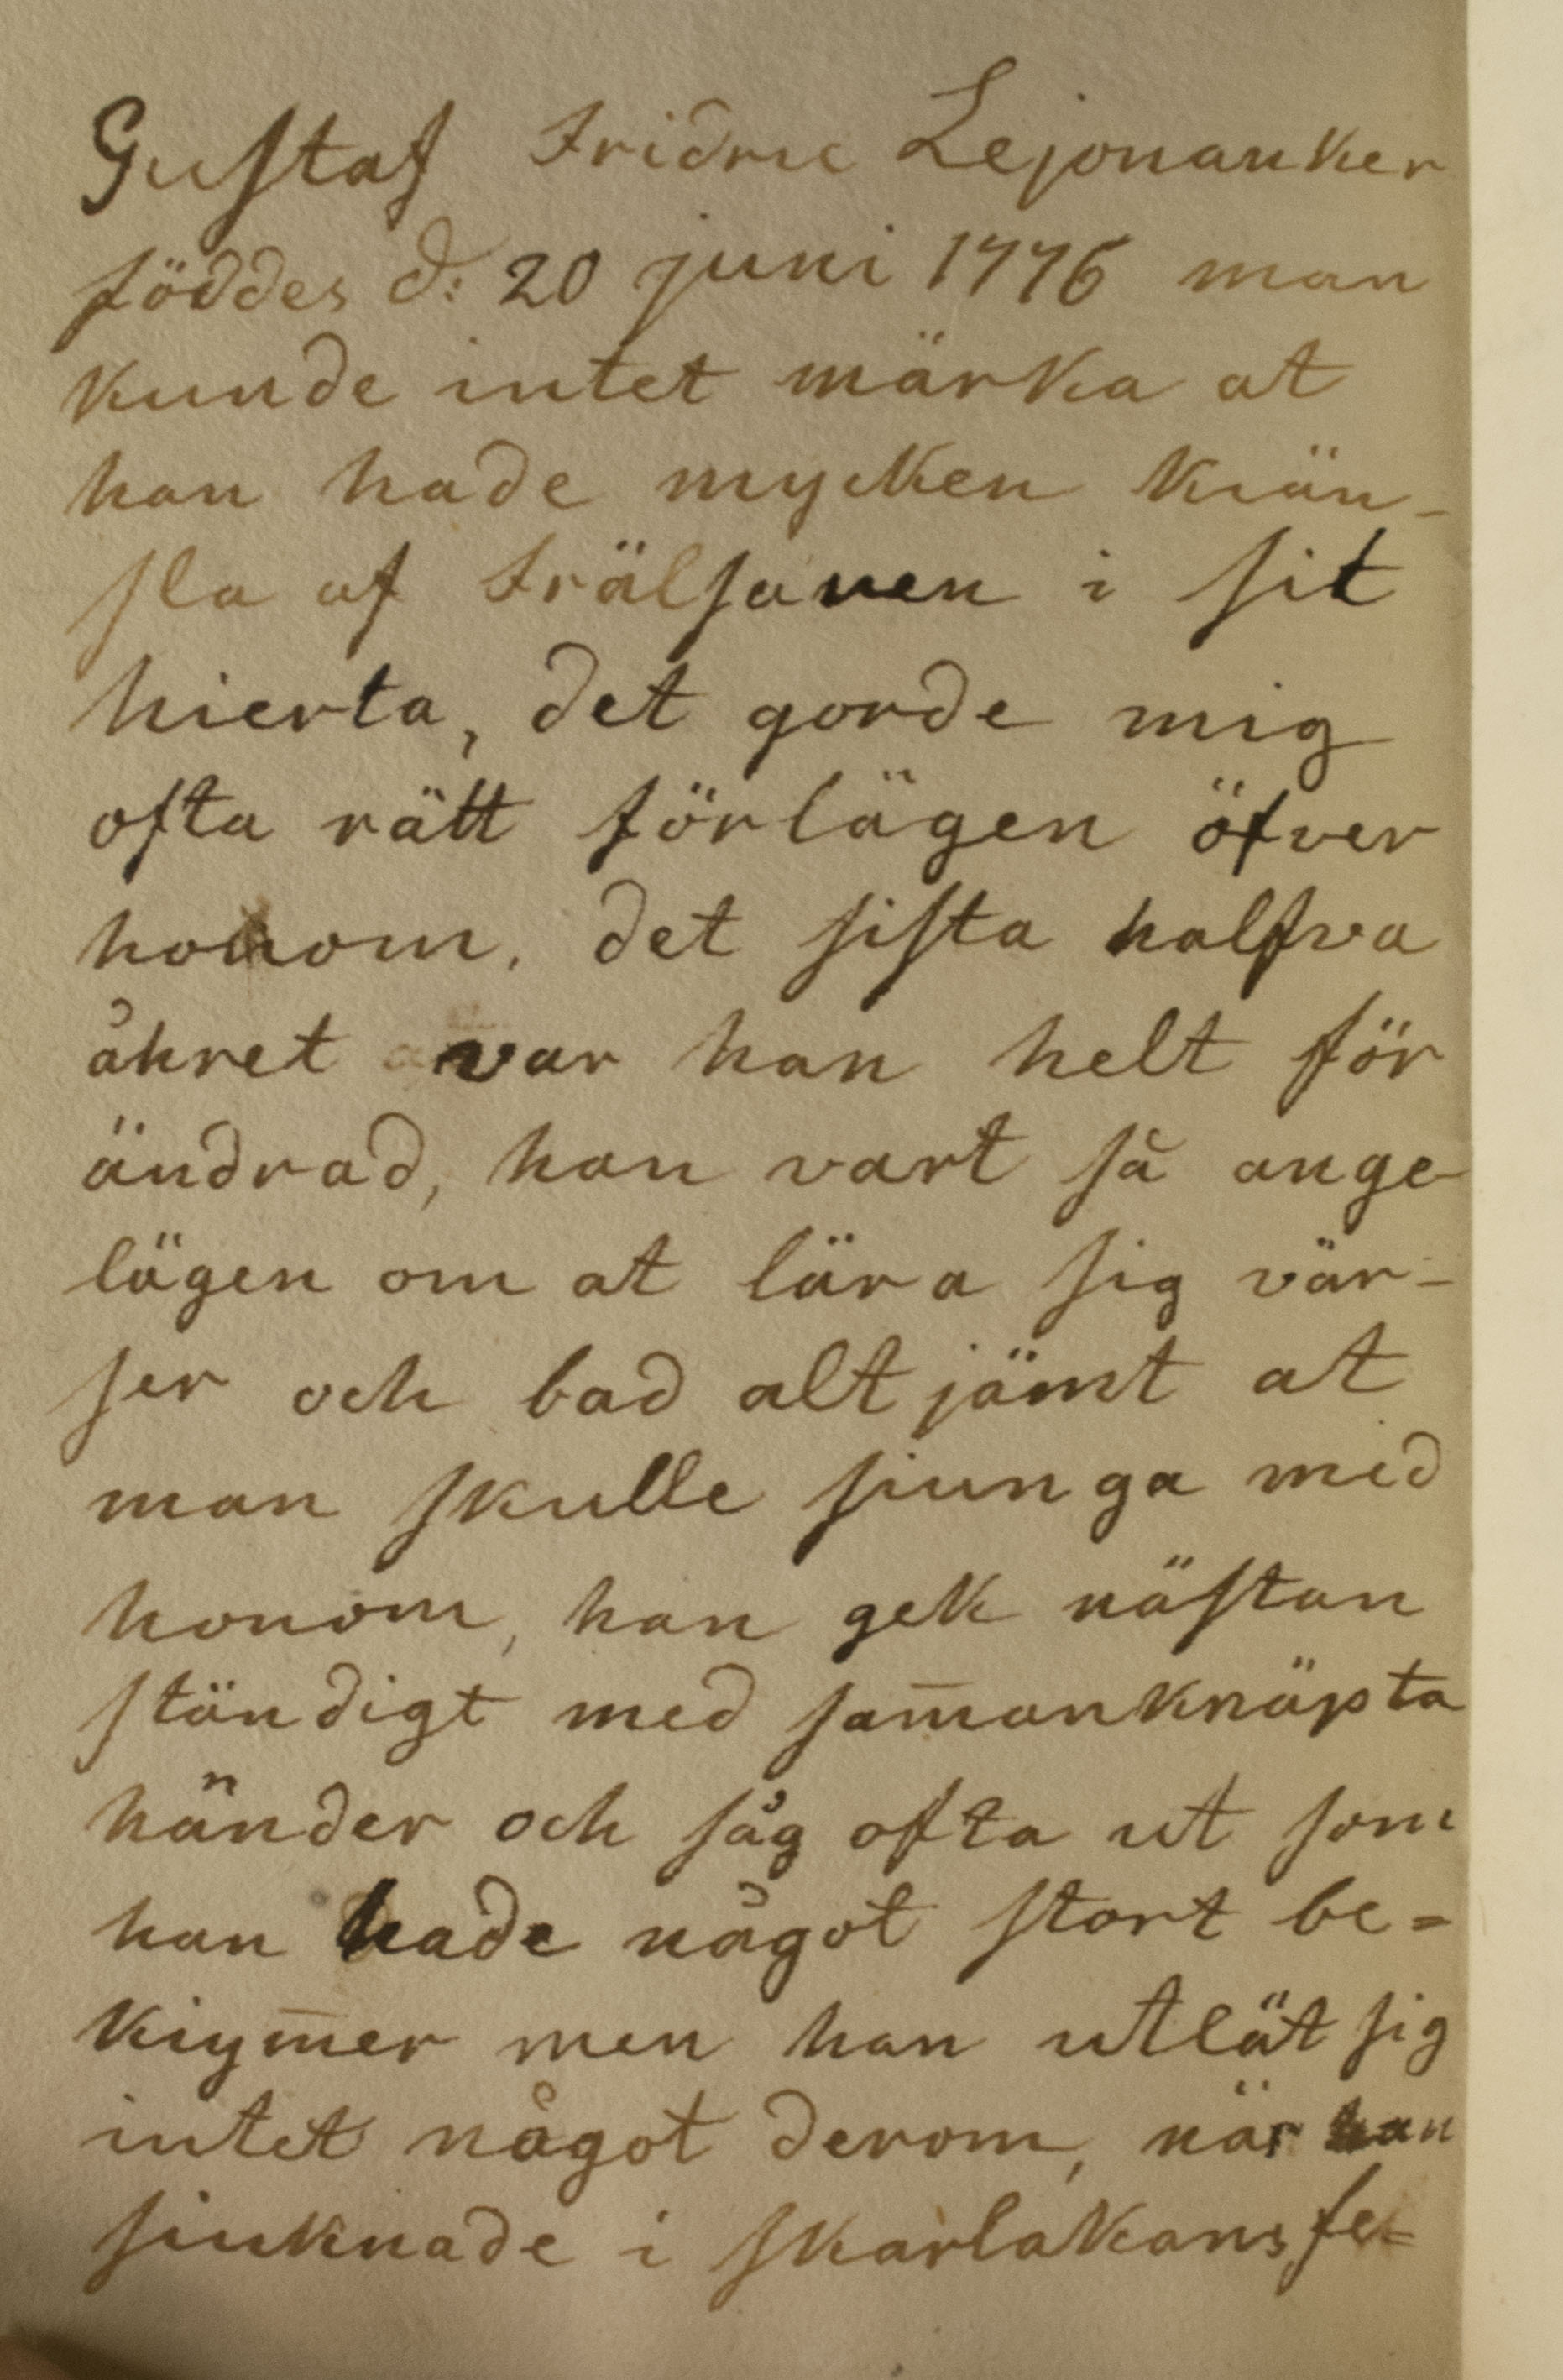 Gustaf Fridric Lejonanker
föddes d: 20 juni 1776 man
kunde intet märka at
han hade mycken kiän-
sla af frälsaren i sit
hierta, det gorde mig
ofta rätt förlägen öfver
honom. det sista halfva
åhret var han helt för
ändrad, han vart så ange-
lägen om at lära sig vär-
ser och bad alt jämt at
man skulle siunga med
honom, han gek nästan
ständigt med sam̄anknäpta
händer och såg ofta ut som
han hade något stort be=
kiym̄er men han utlät sig
intet något derom, när han
siuknade i skarlakansfe=